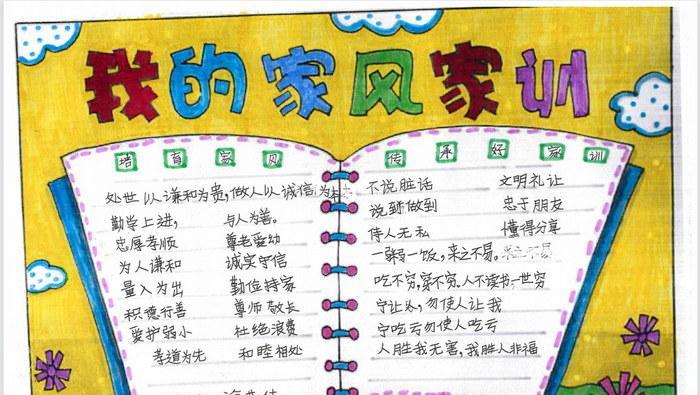 我的家风家训
培育家风
处世以谦和为贵,做人以诚信为
勤学上进, 与人为善。
忠厚孝顺 尊老爱幼
为人谦和 诚实守信
量入为出 勤俭持家
积德行善 尊师敬长
爱护弱小 杜绝浪费
孝道为先 和睦相处
传承好家训
不说脏话 文明礼让
说到做到 忠于朋友
待人无私 懂得分享
一粥一饭,来之不易。
吃不穷,穿不穷。人不读书一世穷
宁让人,勿使人让我
宁吃亏勿使人吃亏
人胜我无害,我胜人非福